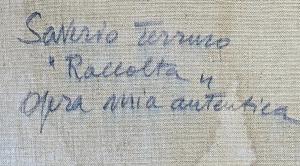 Saverio Terruso
"Raccolta"
opera mia autentica